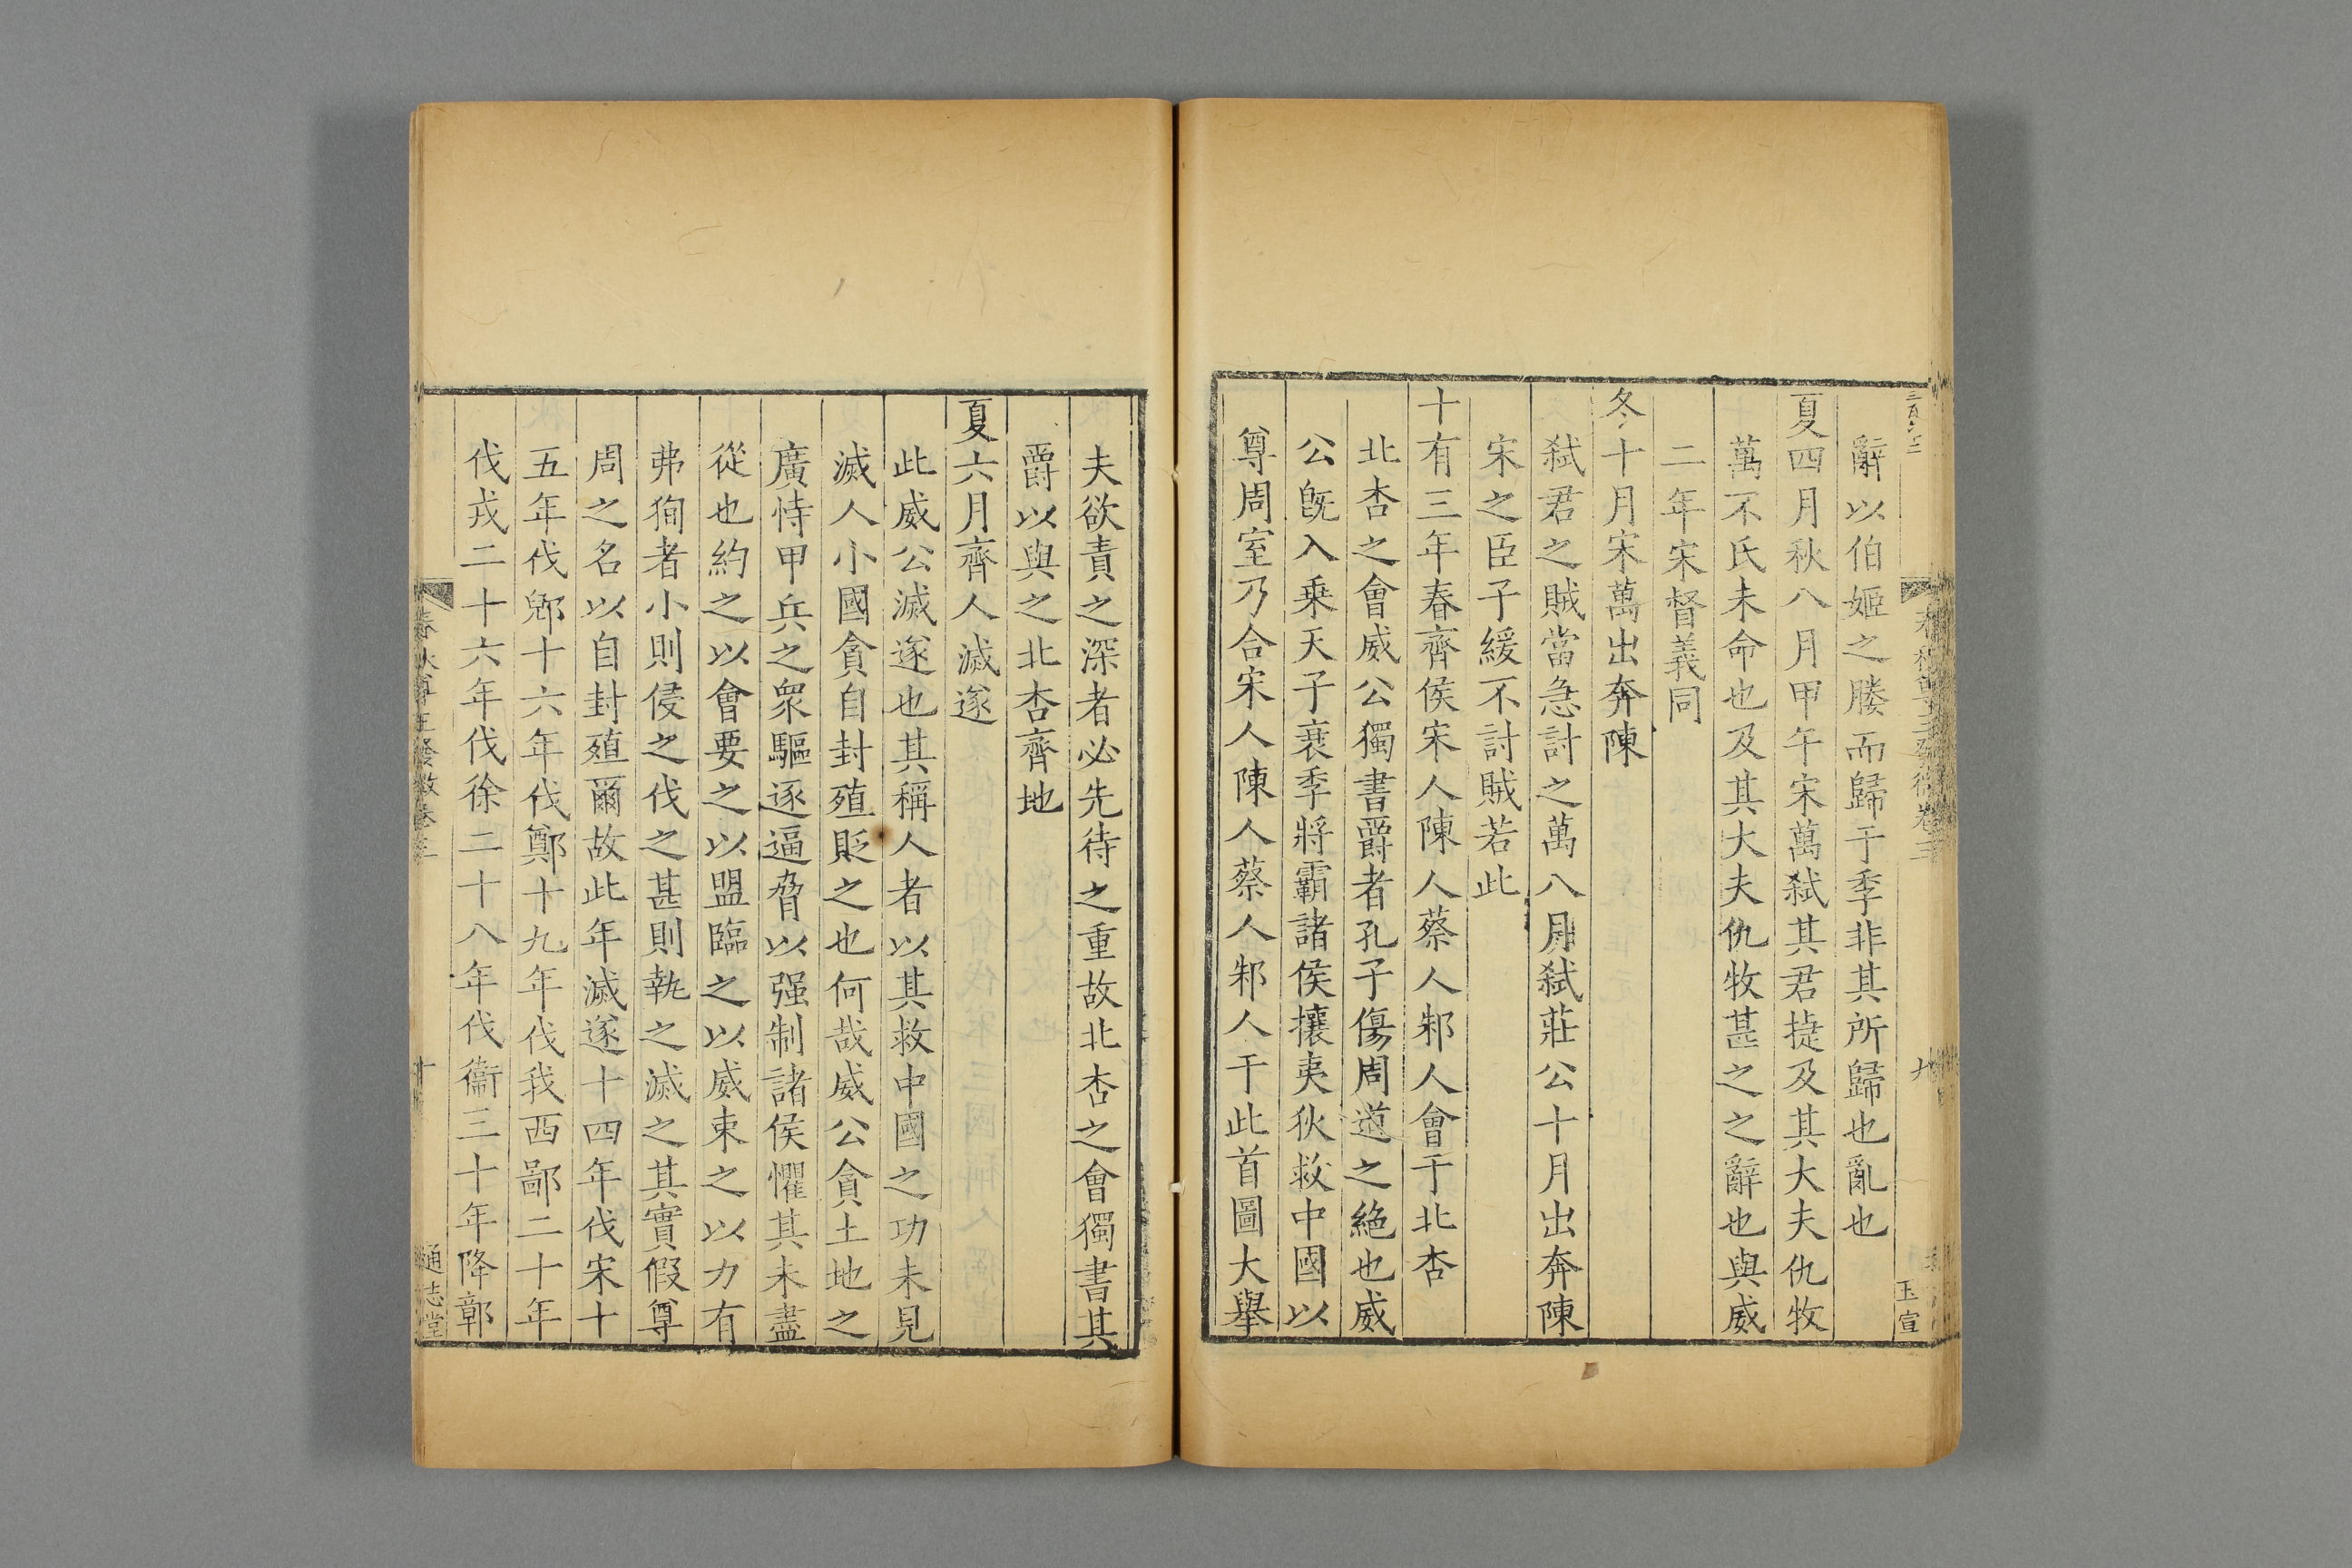 辭以伯姬之媵而歸于季非其所歸也亂也
夏四月秋八月甲午宋萬弑其君捷及其大夫仇牧
萬不氏未命也及其大夫仇牧甚之之辭也與威
二年宋督義同
冬十月宋萬出奔陳
弑君之賊當急討之萬八月弑莊公十月出奔陳
宋之臣子緩不討賊若此
十有三年春齊侯宋人陳人蔡人邾人會于北杏
北杏之會威公獨書爵者孔子傷周道之絶也威
公旣入乗天子衰季將霸諸侯攘夷狄救中國以
尊周室乃合宋人陳人蔡人邾人于此首圖大舉
夫欲責之深者必先待之重故北杏之會獨書其
爵以與之北杏齊地
夏六月齊人滅遂
此威公滅遂也其稱人者以其救中國之功未見
滅人小國貪自封殖貶之也何哉威公貪土地之
廣恃甲兵之衆驅逐逼脅以强制諸侯懼其未盡
從也約之以會要之以盟臨之以威束之以力有
弗狥者小則侵之伐之甚則執之滅之其實假尊
周之名以自封殖爾故此年滅遂十四年伐宋十
五年伐郳十六年伐鄭十九年伐我西鄙二十年
伐戎二十六年伐徐二十八年伐衞三十年降鄣
春秋尊王發微卷三
九
玉宣
春秋尊王發微卷三
十
通志堂